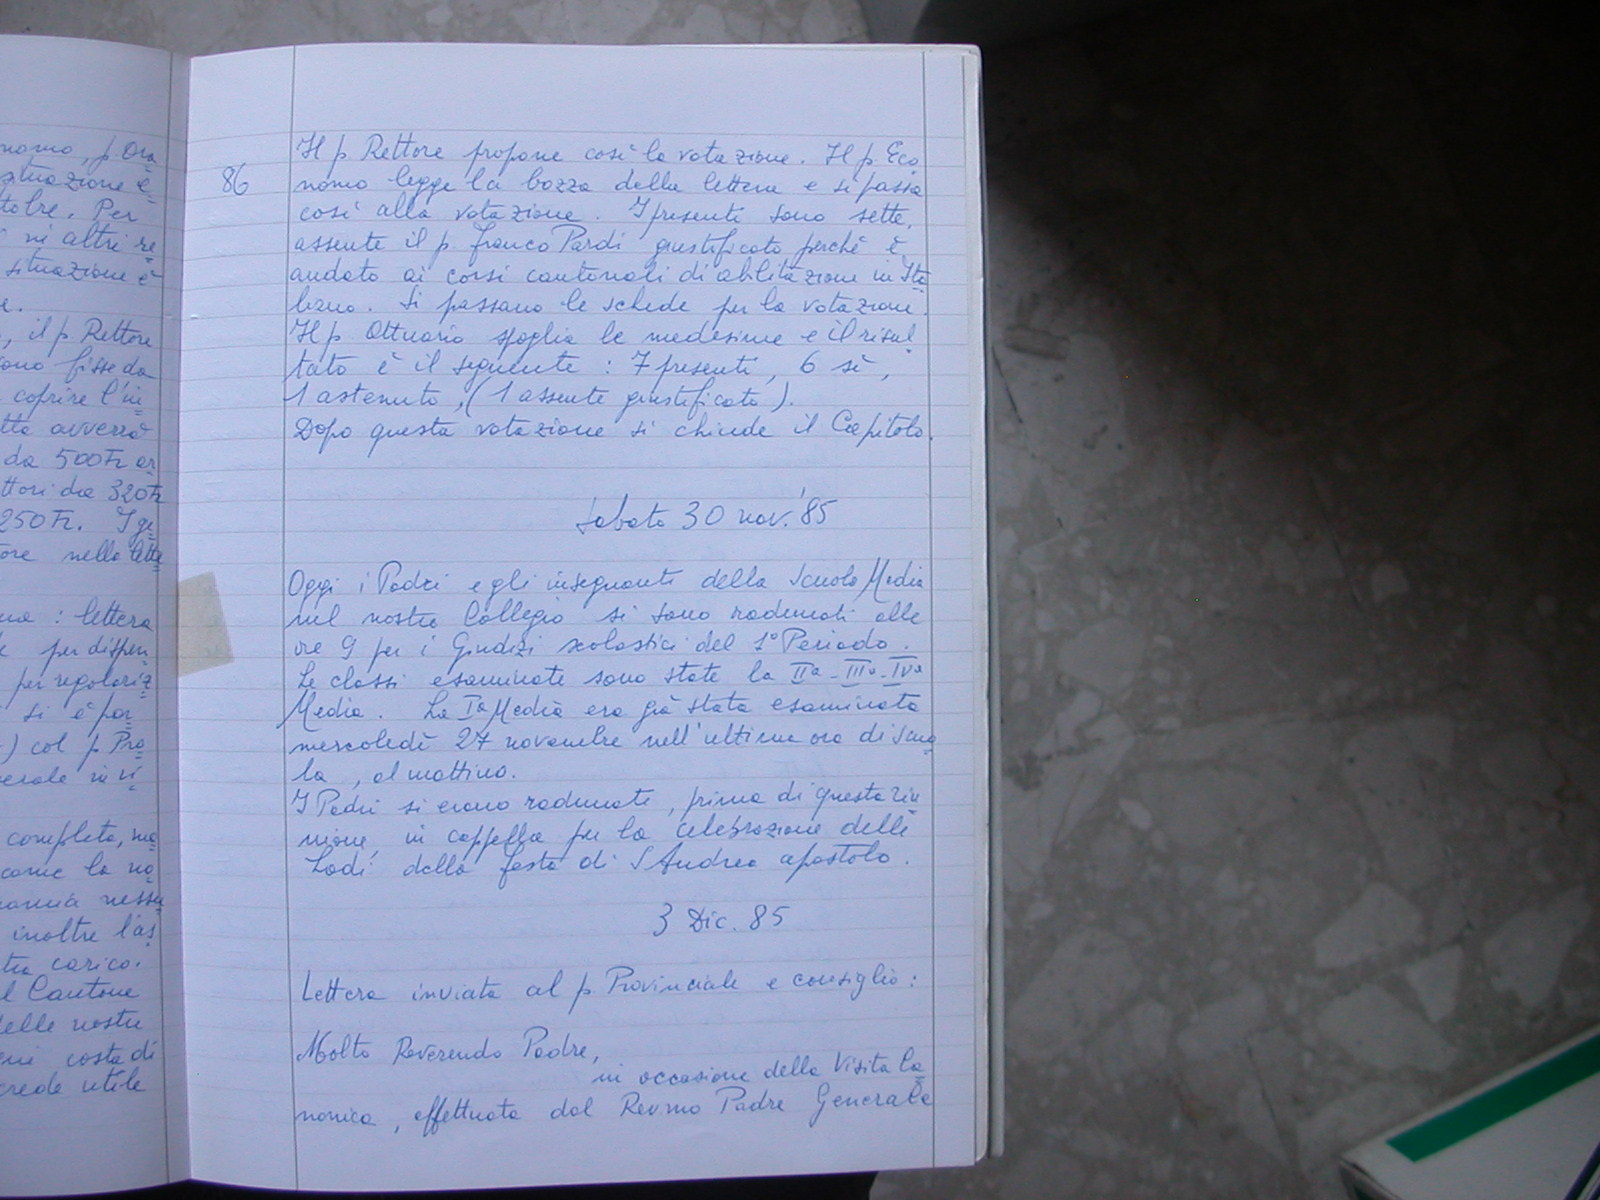 nomo, p. Ora
situazione è
tobre. Per
in altri re
situazione è
e.
, il p. Rettore
sono fisse da
coprire l'in
tta avverrà
da 500 Fr. an
ttori da 320 Fr
250 Fr. I ge
ore nella lette
na : lettera
per dispen
per regolariz
si è par
) col p. Pro
nerale in vi
completa, ma
come la no
nessu
inoltre l'as
tro carico.
l Cantone
delle nostre
costa di
crede utile
86
Il p. Rettore propone così la votazione. Il p. Eco
nomo legge la bozza della lettera e si passa
così alla votazione. I presenti sono sette,
assente il p. Franco Pardi giustificato perchè è
andato ai corsi cantonali di abilitazione in Ita
liano. Si passano le schede per la votazione.
Il p. Attuario spoglia le medesime e il risul
tato è il seguente : 7 presenti, 6 sì,
1 astenuto, (1 assente giustificato).
Dopo questa votazione si chiude il Capitolo.
Sabato 30 nov. '85
Oggi i Padri e gli insegnanti della Scuola Media
nel nostro Collegio si sono radunati alle
ore 9 per i Giudizi scolastici del 1° Periodo.
Le classi esaminate sono state la IIa - IIIa - IVa
Media. La Ia Media era già stata esaminata
mercoledì 27 novembre nell'ultima ora di scuo
la, al mattino.
I Padri si erano radunati, prima di questa riu
nione, in cappella per la celebrazione delle
Lodi della festa di S Andrea apostolo.
3 Dic. 85
Lettera inviata al p Provinciale e consiglio :
Molto Reverendo Padre,
in occasione della Visita Ca
nonica, effettuata dal Rev.mo Padre Generale